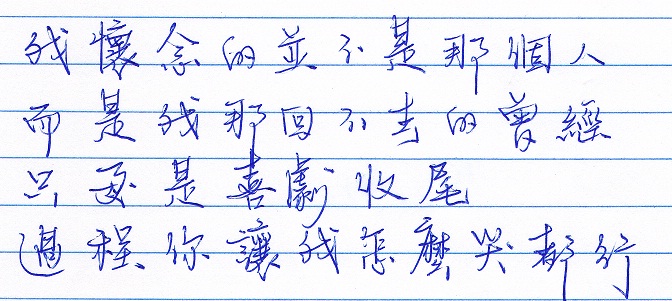 我懷念的並不是那個人
而是我那回不去的曾經
只要是喜劇收尾
過程你讓我怎麼哭都行